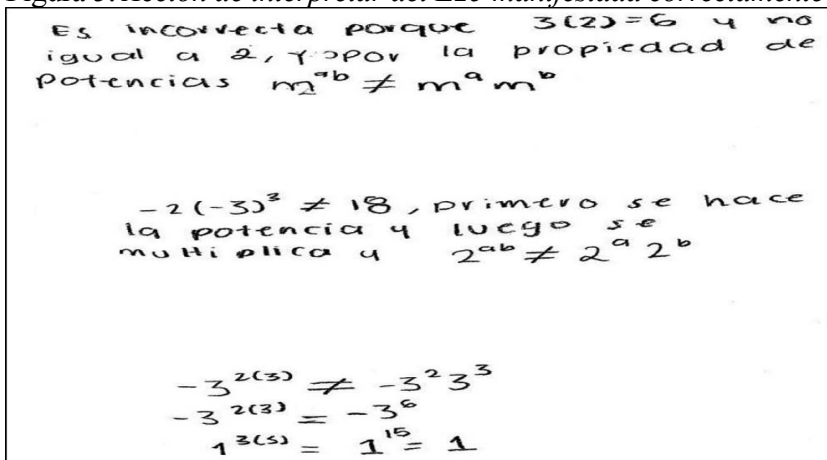 Es incorrecta porque 3(2)=6 y no
igual a 2, y por la propiedad de
potencias m^{ab} ≠ m^a m^b
-2(-3)^3 ≠ 18, primero se hace
la potencia y luego se
multiplica y 2^{ab} ≠ 2^a 2^b
-3^{2(3)} ≠ -3^2 3^3
-3^{2(3)} = -3^6
1^{3(5)} = 1^{15} = 1